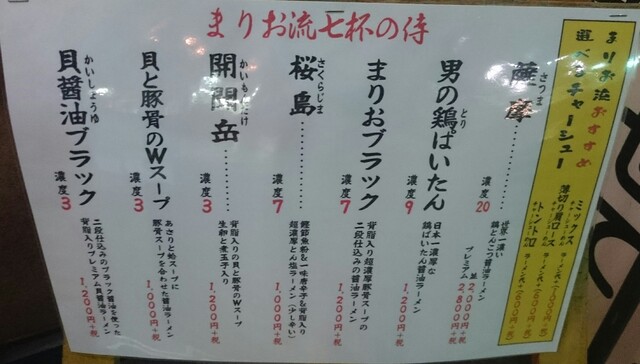 まりお流七杯の侍
まりお流おすすめ
選べるチャーシュー
ミックス
薄切り肩ロース
トントロ
薩摩
さつま
濃度20
世界一濃い
鶏とんこつ醤油ラーメン
並 2,000円+税
プレミアム 2,800円+税
男の鶏ぱいたん
とり
濃度9
日本一濃厚な
鶏ぱいたん醤油ラーメン
1,200円+税
まりおブラック
濃度7
背脂入り超濃厚豚骨スープの
二段仕込みの醤油ラーメン
1,200円+税
桜島
さくらじま
濃度7
鰹節魚粉&一味唐辛子&背脂入り
超濃厚とん塩ラーメン(少し辛い)
1,000円+税
開聞岳
かいもんだけ
濃度3
背脂入りの貝と豚骨のWスープ
生卵と煮玉子入り
1,200円+税
貝と豚骨のWスープ
濃度3
あさりと蛤スープに
豚骨スープを合わせた醤油ラーメン
1,000円+税
貝醤油ブラック
かいしょうゆ
濃度3
二段仕込みのブラック醤油を使った
背脂入りプレミアム貝醤油ラーメン
1,200円+税